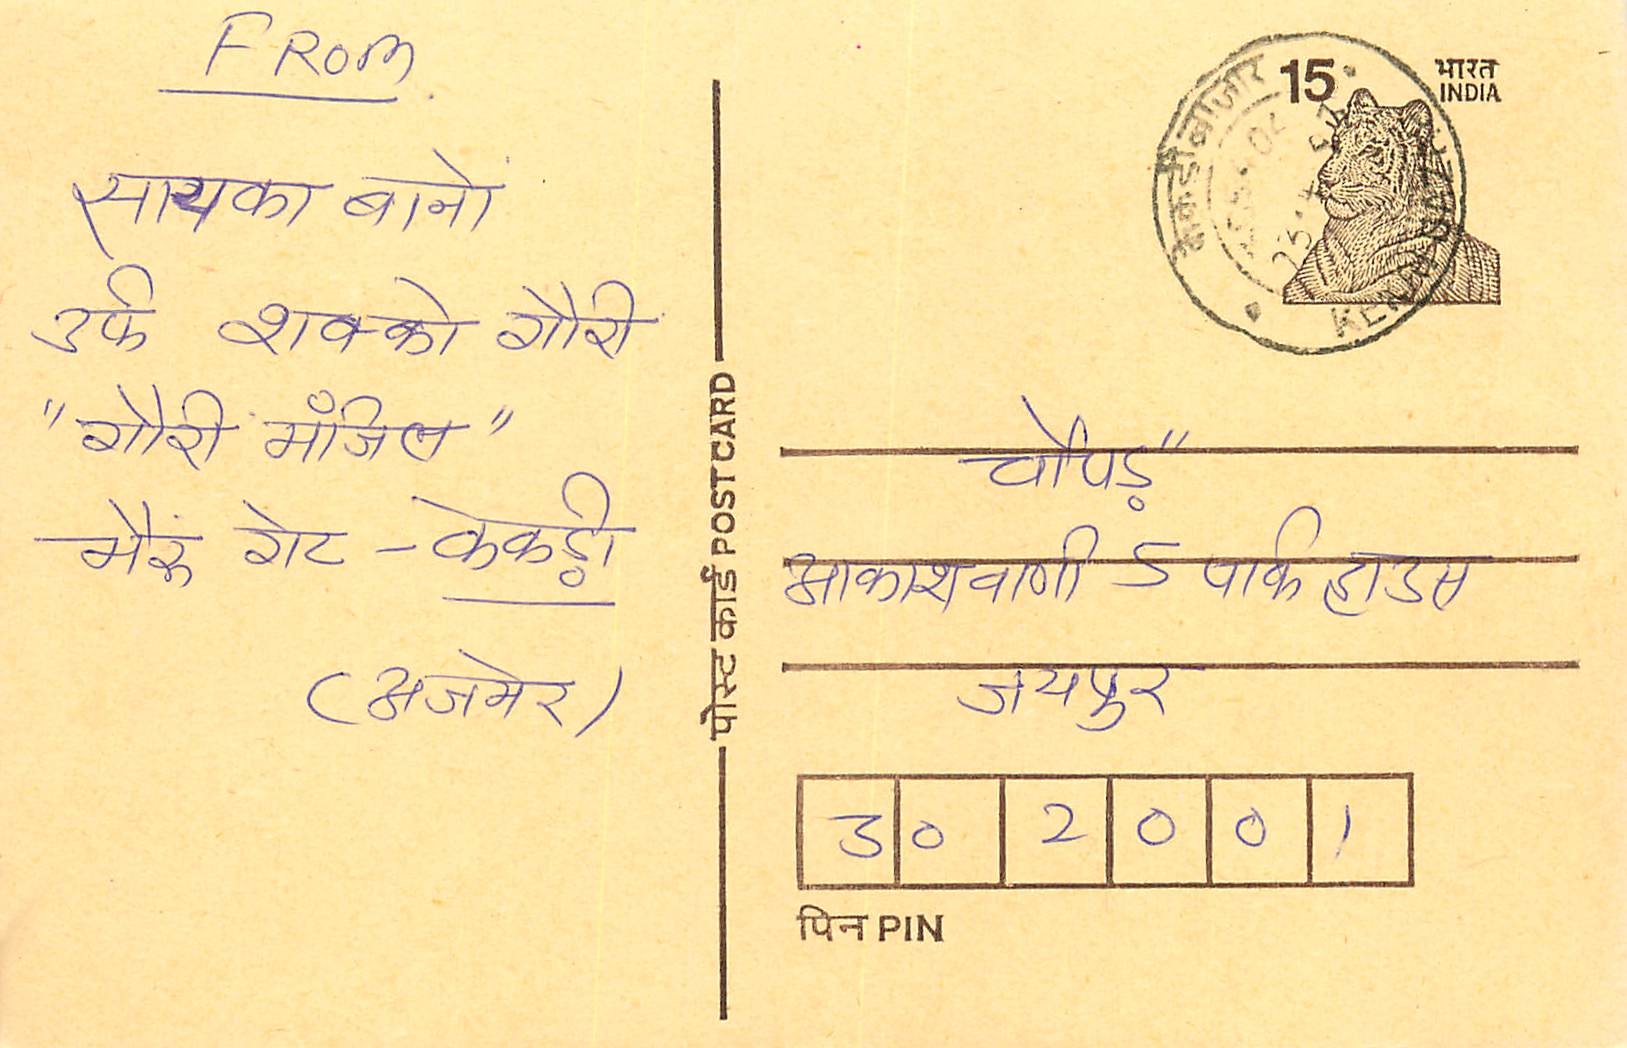 FROM
सायका बानो
उर्फ शक्को गौरी
"गौरी मंजिल"
भैरू गेट - केकड़ी
(अजमेर)
पोस्ट कार्ड POST CARD
15
भारत
INDIA
चौपड़"
आकाशवाणी 5 पार्क हाउस
जयपुर
30 2001
पिन PIN